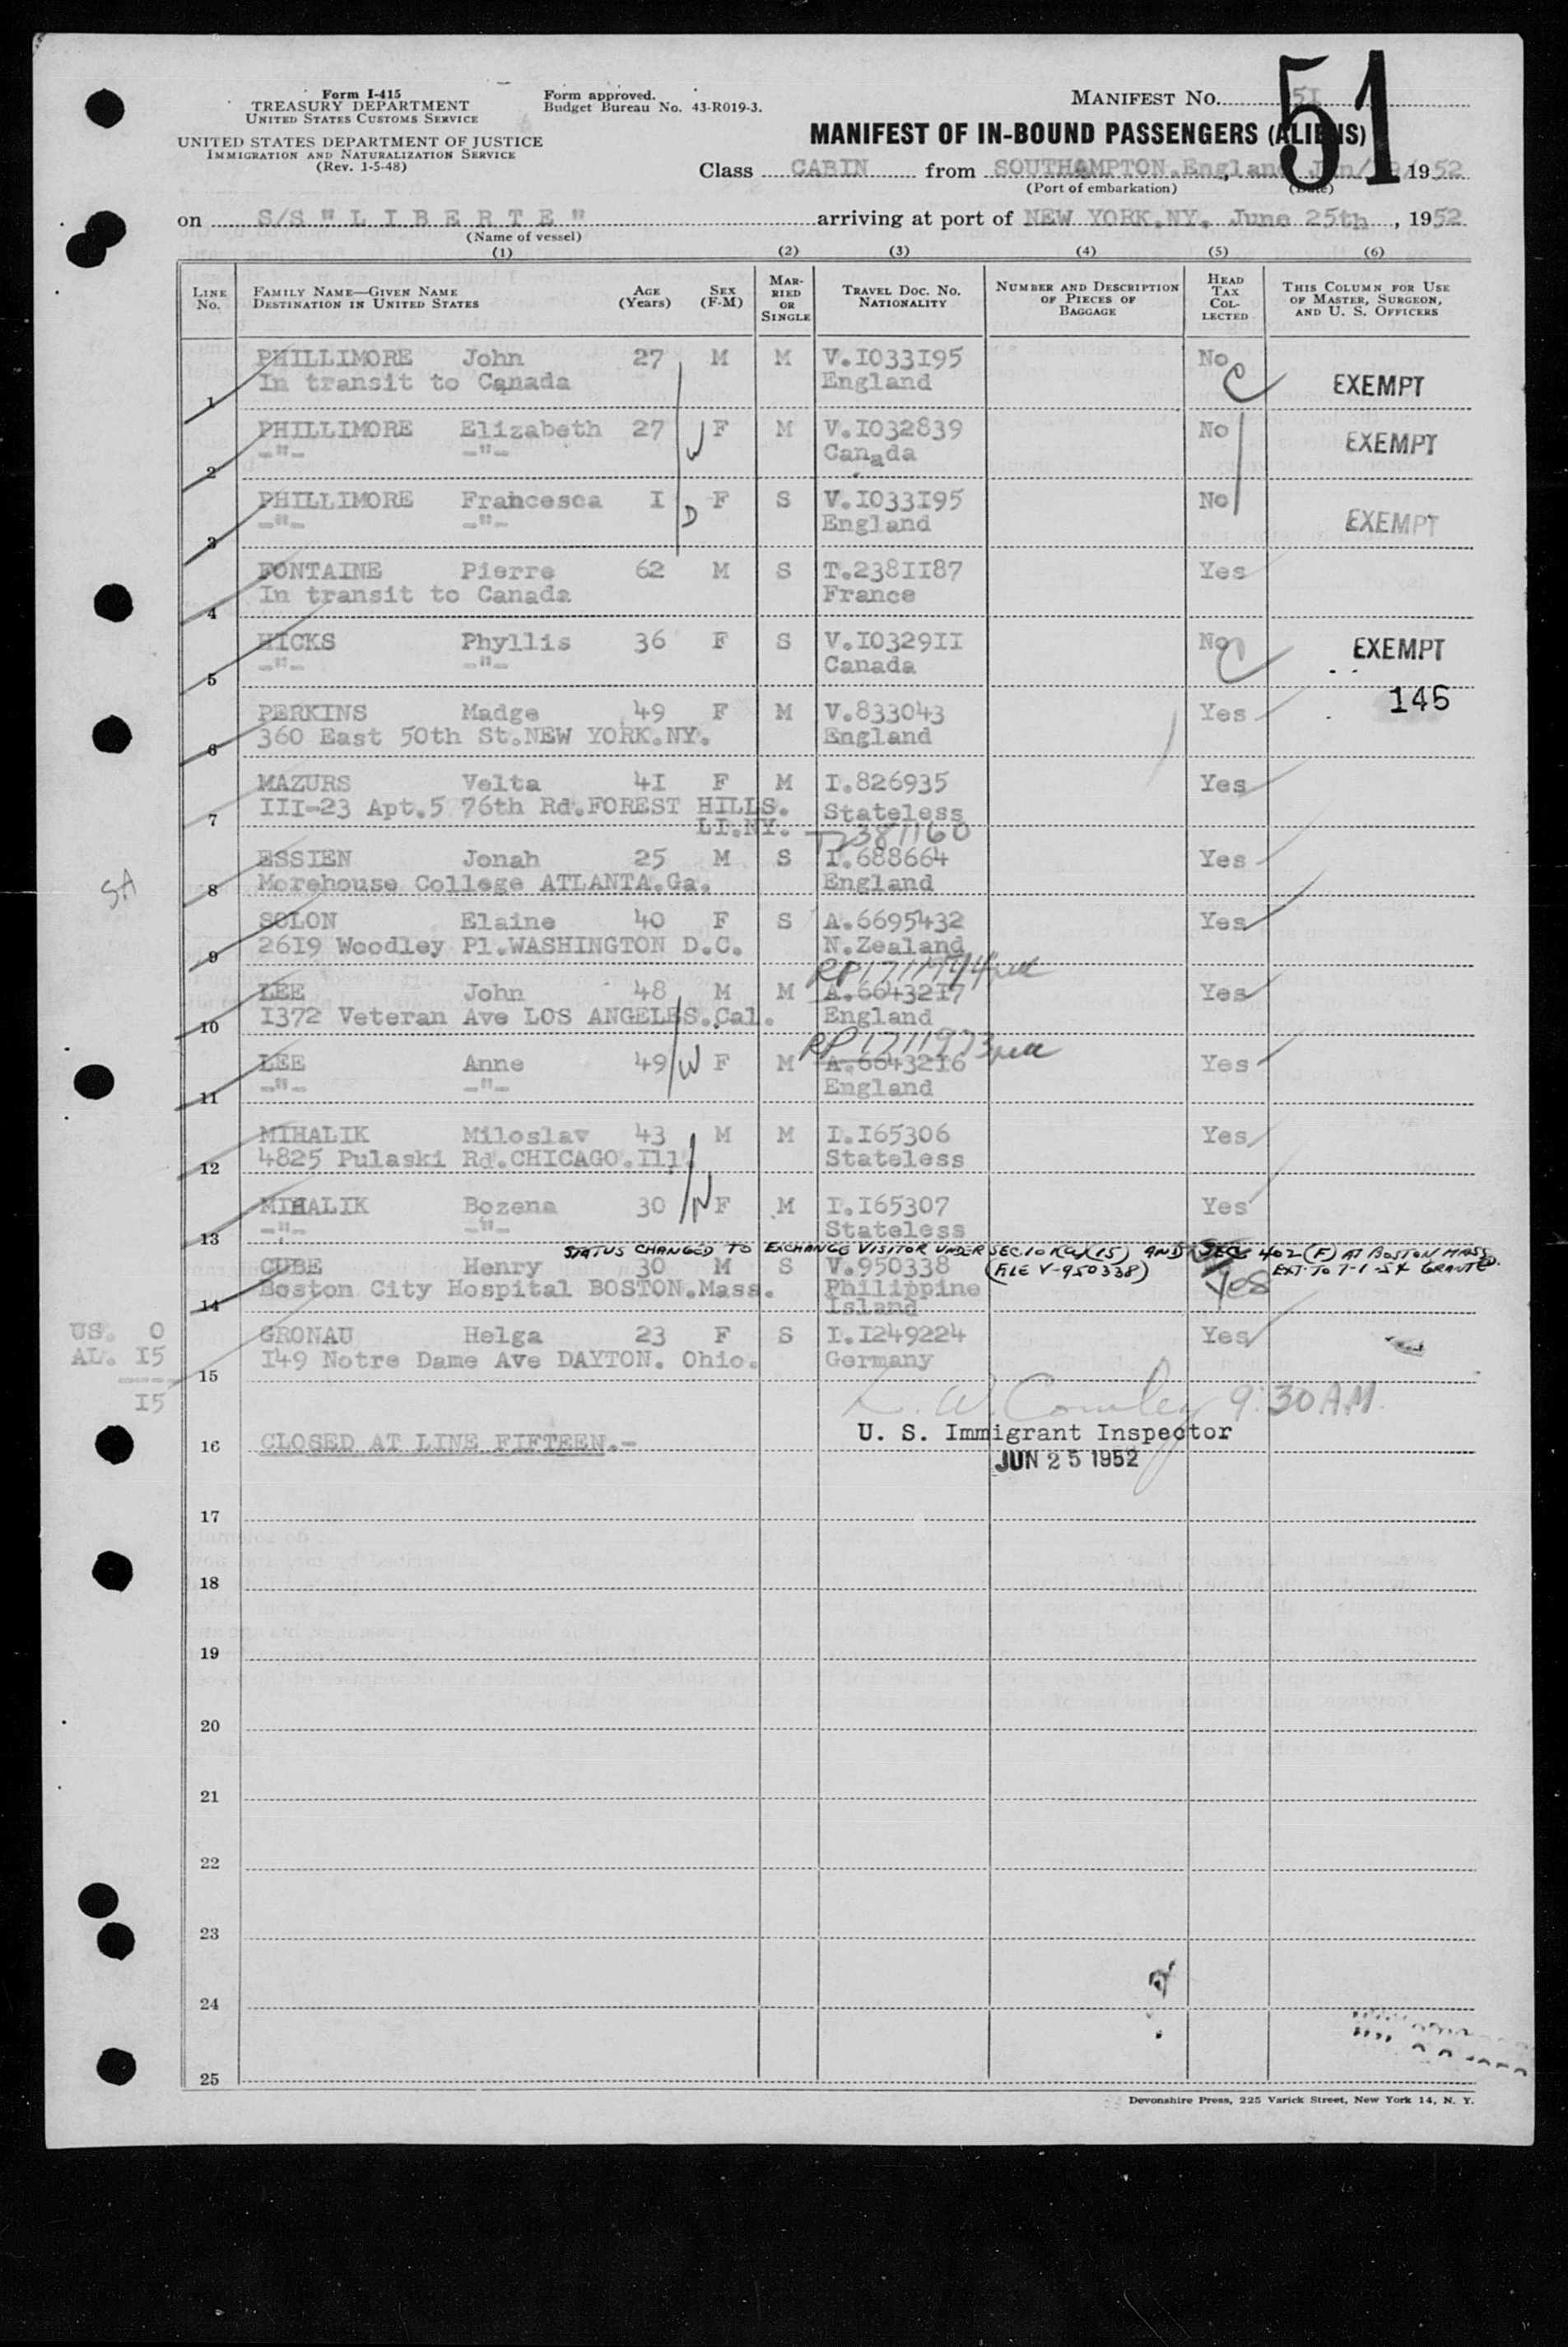 51
Form I-415
TREASURY DEPARTMENT
UNITED STATES CUSTOMS SERVICE
UNITED STATES DEPARTMENT OF JUSTICE
IMMIGRATION AND NATURALIZATION SERVICE
(Rev. 1-5-48)
Form approved.
Budget Bureau No. 43-R019-3.
MANIFEST NO. 51
MANIFEST OF IN-BOUND PASSENGERS (ALIENS)
Class CABIN from SOUTHAMPTON.England, 1952
(Port of embarkation) (Date)
on S/S "L I B E R T E" arriving at port of NEW YORK.NY. June 25th, 1952
(Name of vessel)
(1) (2) (3) (4) (5) (6)
LINE NO. FAMILY NAME—GIVEN NAME DESTINATION IN UNITED STATES AGE (Years) SEX (F-M) MARRIED OR SINGLE TRAVEL DOC. NO. NATIONALITY NUMBER AND DESCRIPTION OF PIECES OF BAGGAGE HEAD TAX COLLECTED THIS COLUMN FOR USE OF MASTER, SURGEON, AND U. S. OFFICERS
PHILLIMORE John 27 M M V.I033I95 No C
1 In transit to Canada England EXEMPT
PHILLIMORE Elizabeth 27 W F M V.I032839 No EXEMPT
2 -"- -"- Canada
PHILLIMORE Francesca I D F S V.I033I95 No
3 -"- -"- England EXEMPT
FONTAINE Pierre 62 M S T.238II87 Yes
4 In transit to Canada France
HICKS Phyllis 36 F S V.I0329II No C EXEMPT
5 -"- -"- Canada
PERKINS Madge 49 F M V.833043 Yes 146
6 360 East 50th St.NEW YORK.NY. England
MAZURS Velta 4I F M I.826935 Yes
7 III-23 Apt.5 76th Rd.FOREST HILLS. Stateless
LI.NY. T2381160
ESSIEN Jonah 25 M S I.688664 Yes
8 Morehouse College ATLANTA.Ga. England
SA
SOLON Elaine 40 F S A.6695432 Yes
9 26I9 Woodley Pl.WASHINGTON D.C. N.Zealand
LEE John 48 M M A.66432I7 Yes
10 I372 Veteran Ave LOS ANGELES.Cal. England
RP1711973
LEE Anne 49 W F M A.66432I6 Yes
11 -"- -"- England
MIHALIK Miloslav 43 M M I.I65306 Yes
12 4825 Pulaski Rd.CHICAGO.Ill. Stateless
MIHALIK Bozena 30 W F M I.I65307 Yes
13 -"- -"- Stateless
STATUS CHANGED TO EXCHANGE VISITOR UNDER SEC 10 AND SEC 402 (F) AT BOSTON MASS
(FILE V-950338) EXT. TO 7-1-54 GRANTED.
CUBE Henry 30 M S V.950338 Yes
14 Boston City Hospital BOSTON.Mass. Philippine
Island
US. 0
AL. I5
----
I5
GRONAU Helga 23 F S I.I249224 Yes
15 I49 Notre Dame Ave DAYTON. Ohio. Germany
9:30 A.M.
U. S. Immigrant Inspector
16 CLOSED AT LINE FIFTEEN.-
JUN 25 1952
17
18
19
20
21
22
23
24
25
Devonshire Press, 225 Varick Street, New York 14, N. Y.